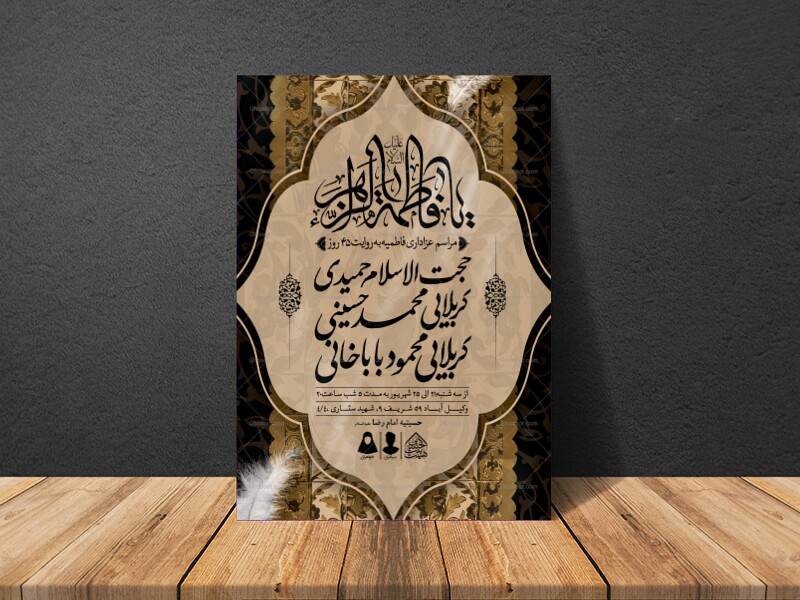 علیها السلام
یا فاطمة الزهراء
مراسم عزاداری فاطمیه به روایت ۴۵ روز
حجت الاسلام حمیدی
کربلایی محمد حسینی
کربلایی محمود باباخانی
از سه شنبه ۲۱ الی ۲۵ شهریور به مدت ۵ شب ساعت ۲۰
وکیل آباد ۵۹ شریف ۹، شهید ستاری ۴/۴۰
حسینیه امام رضا علیه السلام